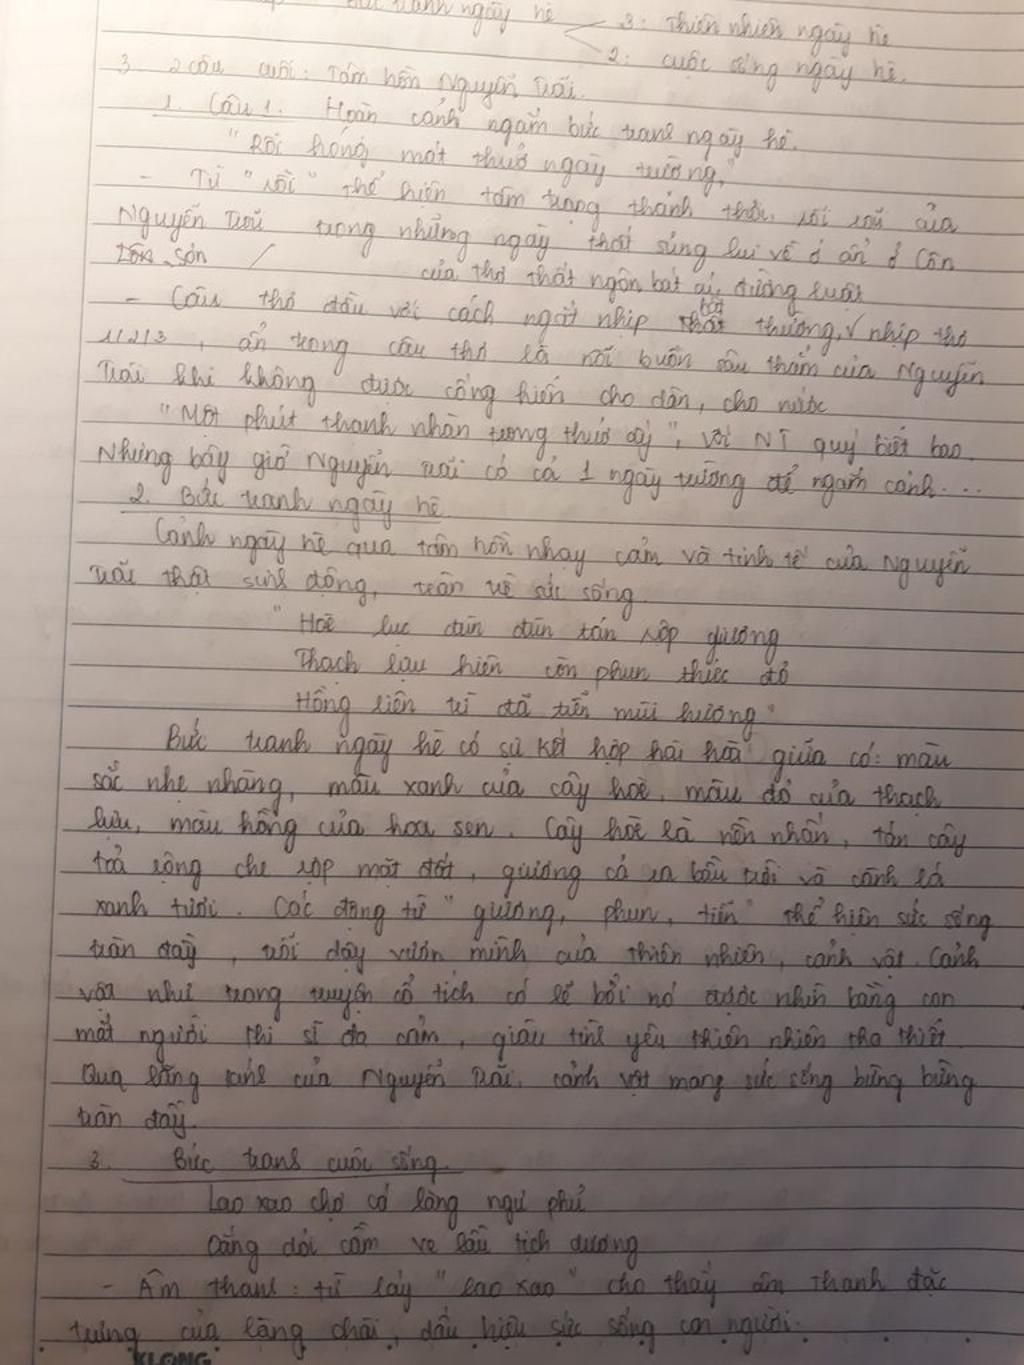 Bức tranh ngày hè 3: Thiên nhiên ngày hè
2: cuộc sống ngày hè.
3 2 câu cuối: Tâm hồn Nguyễn Trãi.
1. Câu 1: Hoàn cảnh ngắm bức tranh ngày hè.
"Rồi hóng mát thuở ngày trường,"
- Từ "rồi" thể hiện tâm trạng thảnh thơi, rỗi rãi của
Nguyễn Trãi trong những ngày thất sủng lui về ở ẩn ở Côn
Sơn / của thơ thất ngôn bát cú đường luật
- Câu thơ đầu với cách ngắt nhịp bất thường, √ nhịp thơ
1/2/3, ẩn trong câu thơ là nỗi buồn sâu thẳm của Nguyễn
Trãi khi không được cống hiến cho dân, cho nước
"Một phút thanh nhàn trong thuở ấy", với NT quý biết bao.
Nhưng bây giờ Nguyễn Trãi có cả 1 ngày trường để ngắm cảnh...
2. Bức tranh ngày hè
Cảnh ngày hè qua tâm hồn nhạy cảm và tinh tế của Nguyễn
Trãi thật sinh động, tràn trề sức sống
"Hoè lục đùn đùn tán rợp giương
Thạch lựu hiên còn phun thức đỏ
Hồng liên trì đã tiễn mùi hương"
Bức tranh ngày hè có sự kết hợp hài hoà giữa có: màu
sắc nhẹ nhàng, màu xanh của cây hoè, màu đỏ của thạch
lựu, màu hồng của hoa sen. Cây hoè là nền nhấn, tán cây
toả rộng che rợp mặt đất, giương cả ra bầu trời và cành lá
xanh tươi. Các động từ "giương, phun, tiễn" thể hiện sức sống
tràn đầy, trỗi dậy vươn mình của thiên nhiên, cảnh vật. Cảnh
vật như trong truyện cổ tích có lẽ bởi nó được nhìn bằng con
mắt người thi sĩ đa cảm, giàu tình yêu thiên nhiên tha thiết.
Qua lăng kính của Nguyễn Trãi, cảnh vật mang sức sống bừng bừng
tràn đầy.
3. Bức tranh cuộc sống.
Lao xao chợ cá làng ngư phủ
Dắng dỏi cầm ve lầu tịch dương
- Âm thanh: từ láy "lao xao" cho thấy âm thanh đặc
trưng của làng chài, dấu hiệu sức sống con người.
KLONG